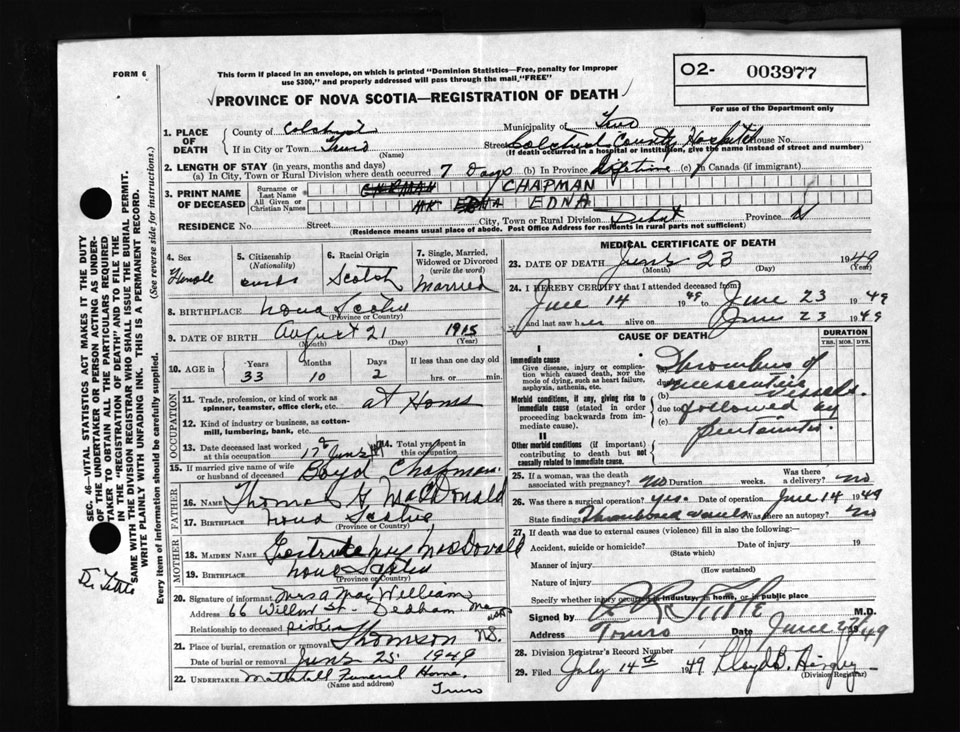 FORM 6
This form if placed in an envelope, on which is printed "Dominion Statistics—Free, penalty for improper
use $300," and properly addressed will pass through the mail, "FREE"
PROVINCE OF NOVA SCOTIA—REGISTRATION OF DEATH
O2- 003977
For use of the Department only
1. PLACE OF DEATH
County of Municipality of
If in City or Town Truro (Name) Street Colchester County Hospital House No.
(If death occurred in a hospital or institution, give the name instead of street and number)
2. LENGTH OF STAY (in years, months and days)
(a) In City, Town or Rural Division where death occurred 7 Days (b) In Province Lifetime (c) In Canada (if immigrant)
3. PRINT NAME OF DECEASED
Surname or Last Name CHAPMAN
All Given or Christian Names EDNA
RESIDENCE No. Street City, Town or Rural Division Debert Province
(Residence means usual place of abode. Post Office Address for residents in rural parts not sufficient)
4. Sex Female
5. Citizenship (Nationality)
6. Racial Origin Scotch
7. Single, Married, Widowed or Divorced (write the word) Married
8. BIRTHPLACE Nova Scotia
(Province or Country)
9. DATE OF BIRTH August 21 1915
(Month) (Day) (Year)
10. AGE in Years Months Days If less than one day old
33 10 2 hrs. or min.
OCCUPATION
11. Trade, profession, or kind of work as spinner, teamster, office clerk, etc. at Home
12. Kind of industry or business, as cotton-mill, lumbering, bank, etc.
13. Date deceased last worked at this occupation 17 June
14. Total yrs. spent in this occupation
15. If married give name of wife or husband of deceased Boyd Chapman
FATHER
16. NAME Thomas G MacDonald
17. BIRTHPLACE Nova Scotia
(Province or Country)
MOTHER
18. MAIDEN NAME
19. BIRTHPLACE Nova Scotia
(Province or Country)
20. Signature of informant Mrs A MacWilliam
Address 66 Willow St - Dedham
Relationship to deceased sister
21. Place of burial, cremation or removal Thomson N.S.
Date of burial or removal June 25 1949
22. UNDERTAKER Mattatall Funeral Home
(Name and address) Truro
MEDICAL CERTIFICATE OF DEATH
23. DATE OF DEATH June 23 1949
(Month) (Day) (Year)
24. I HEREBY CERTIFY that I attended deceased from
June 14 1949 to June 23 1949
and last saw her alive on June 23 1949
CAUSE OF DEATH
DURATION
YRS. MOS. DYS.
I
Immediate cause
Give disease, injury or complication which caused death, NOT the mode of dying, such as heart failure, asphyxia, asthenia, etc.
(a) Thrombus of
due to mesenteric
(b) vessels.
Morbid conditions, if any, giving rise to immediate cause (stated in order proceeding backwards from immediate cause).
due to followed by
(c) peritonitis.
II
Other morbid conditions (if important) contributing to death but not causally related to immediate cause.
25. If a woman, was the death associated with pregnancy? No Duration weeks. Was there a delivery? No
26. Was there a surgical operation? yes. Date of operation June 14 1949
State findings Thrombosed vessels Was there an autopsy? No
27. If death was due to external causes (violence) fill in also the following:—
Accident, suicide or homicide? Date of injury 19
(State which)
Manner of injury
(How sustained)
Nature of injury
Specify whether injury occurred in industry, in home, or in public place
Signed by M.D.
Address Truro Date June 49
28. Division Registrar's Record Number
29. Filed July 14th 1949 Lloyd B.
(Division Registrar)
SEC. 46—VITAL STATISTICS ACT MAKES IT THE DUTY
OF THE UNDERTAKER OR PERSON ACTING AS UNDER-
TAKER TO OBTAIN ALL THE PARTICULARS REQUIRED
IN THE "REGISTRATION OF DEATH" AND TO FILE THE
SAME WITH THE DIVISION REGISTRAR WHO SHALL ISSUE THE BURIAL PERMIT.
WRITE PLAINLY WITH UNFADING INK. THIS IS A PERMANENT RECORD.
Every item of information should be carefully supplied. (See reverse side for instructions.)